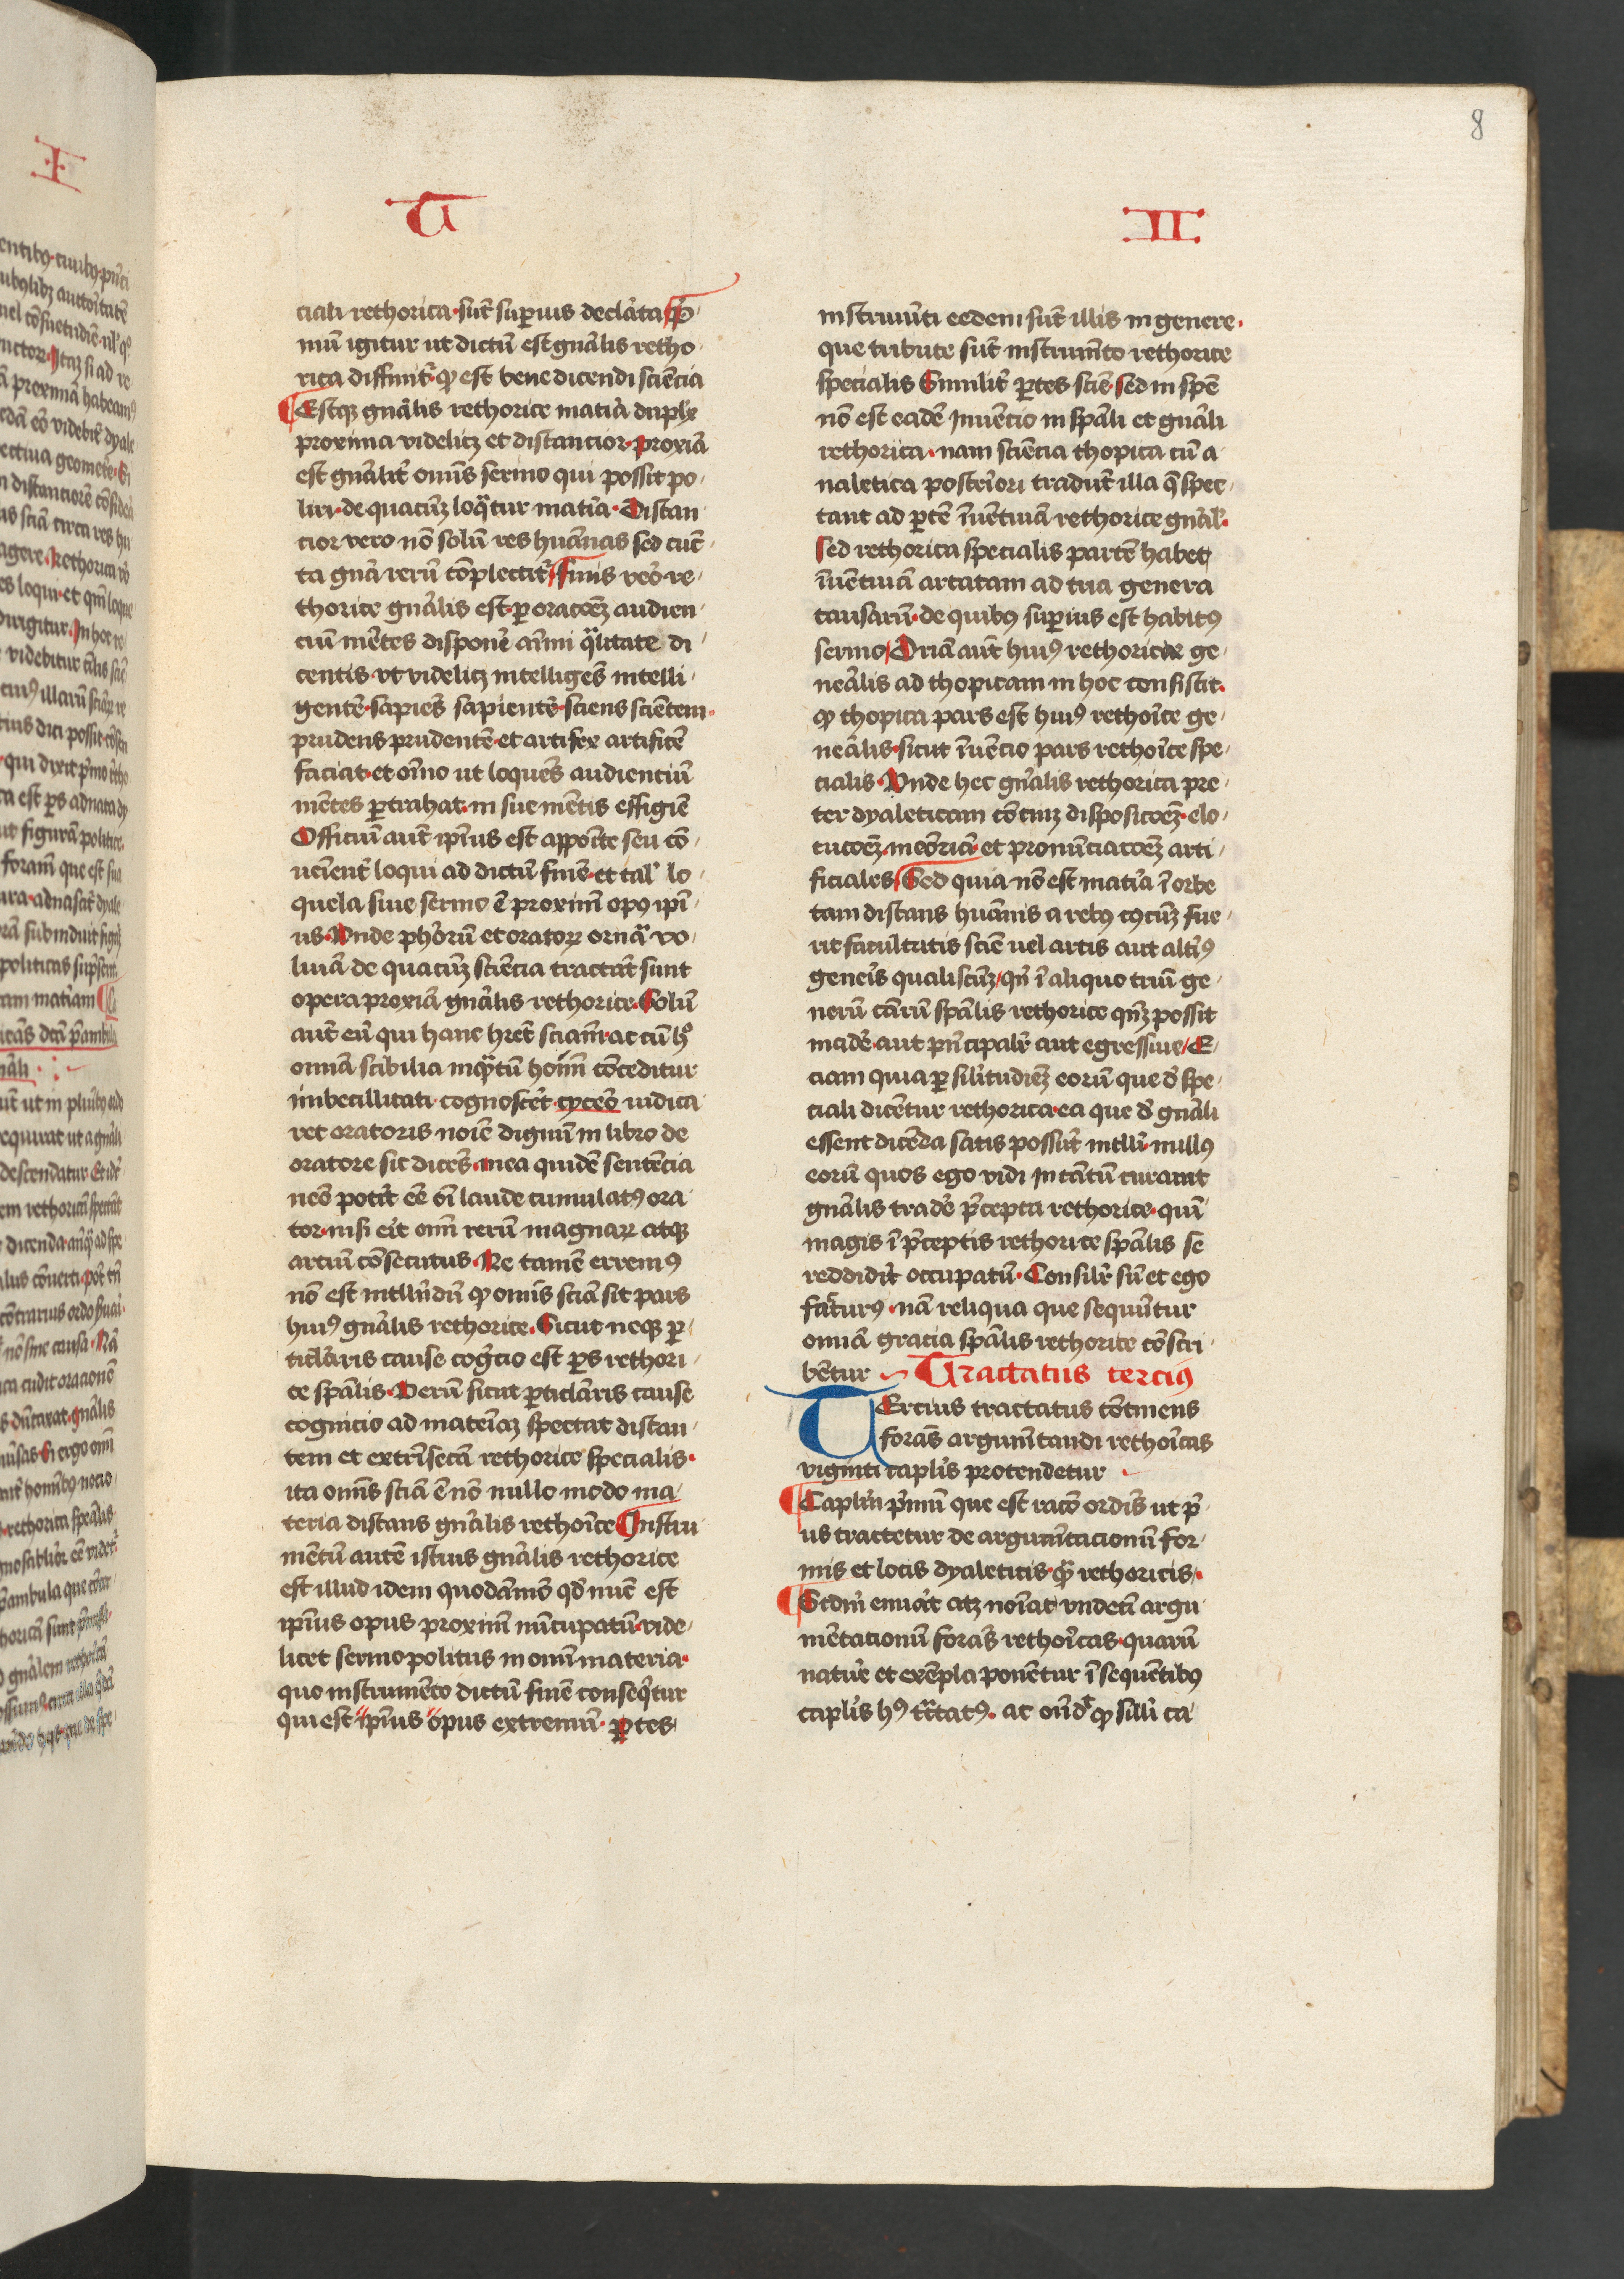 8
T
II
ciali rethorica· sūt suꝑius declāta P̄
mū igitur ut dictū est gn̄alis retho
rica diffinit᷑· ꝙ est bene dicendi sciēcia
Estqꝫ gn̄alis rethorice mat̄ia duplꝫ
proxima videlicꝫ et distancior· proxīa
est gn̄alit᷑ om̄is sermo qui possit po
liri· de quacūꝫ loq̄tur mat̄ia· Distan
cior vero nō solū res hūanas sed cūc
ta gn̄a rerū cōplectit᷑ Finis vēo re
thorice gn̄alis est· ꝑ oracōeꝫ audien
ciū mētes disponē aīmi q̄litate di
centis· vt videlicꝫ intelligēs intelli
gentē· sapiēs sapientē· sciens sciētem·
prudens prudentē· et artifex artificē
faciat· et oīno ut loquēs audienciū
mētes ꝑtrahat· in sue mētis effigiē
Officiū aut̄ ip̄ius est appoīte seu cō
ueīent᷑ loqui ad dictū finē· et tal᷑ lo
quela siue sermo ē proximū opꝰ ip̄i
us· Unde ph̄orū et oratoꝝ ornā vo
lūia de quacūꝫ sciēcia tractāt sunt
opera proxīa gn̄alis rethorice· Solū
aut̄ eū qui hanc hr̄et sciam̄· ac cū hͦ
om̄ia scibilia inq̄tū hoīm cōceditur
imbecillitati cognosc̄et· cyceō iudica
ret oratoris noīe dignū in libro de
oratore sic dicēs· mea quidē sentēcia
neō pot̄it eē oī laude cumulatꝰ ora
tor· nisi eīt om̄ rerū magnaꝝ atqꝫ
arciū cōsecutus· Ne tamē erremꝰ
nō est intlln̄dū ꝙ om̄is sciā sit pars
huiꝰ gn̄alis rethorice· Sicut neqꝫ ꝑ
ticl̄aris cause coḡcio est ꝑs rethori
ce spālis· Verū sicut ꝑticl̄aris cause
cognicio ad mateīaꝫ spectat distan
tem et extrīsecā rethorice specialis·
ita om̄is sciā ē nō nullo modo ma
teria distans gn̄alis rethoīce Instru
mētū autē istius gn̄alis rethorice
est illud idem quodāmō qd̄ nūc est
ip̄ius opus proximū nūcupatū· vide
licet sermo politus in om̄i materia·
quo instrumēto dictū finē conseq̄tur
qui est ip̄ius opus extremū· ꝑtes
instrumēti eedem sūt illis in genere·
que tribute sūt instrumēto rethorice
specialis Similit᷑ ꝑtes sciē· sed in spē
nō est eadē Inuēcio in spāli et gn̄ali
rethorica· nam sciēcia thopica cū a
naletica posteīori tradūt illa q̄ spec
tant ad ꝑtē īuētiuā rethorice gn̄al᷑·
Sed rethorica specialis partē habet
īuētiuā artatam ad tria genera
causarū· de quibꝰ suꝑius est habitꝰ
sermo Dr̄iā aut̄ huiꝰ rethorice ge
neālis ad thopicam in hoc consistit·
ꝙ thopica pars est huiꝰ rethoīce ge
neālis· sicut īuēcio pars rethoīce spe
cialis· Unde hec gn̄alis rethorica pre
ter dyaleticam cōtinꝫ disposicōeꝫ· elo
cucōeꝫ· meōriā· et pronūciacōeꝫ arti
ficiales Sed quia nō est mat̄ia ī orbe
tam distans hūanis a rebꝰ cꝰcūꝫ fue
rit facultatis sciē uel artis aut alt̄iꝰ
geneīs qualiscūꝫ· qn̄ ī aliquo triū ge
nerū cārū spālis rethorice qn̄ꝫ possit
incidē· aut pn̄cipalr̄ aut egressiue E
ciam quia ꝑ sil̄itudieꝫ eorū que d̄ spe
ciali dicētur rethorica· ea que d̄ gn̄ali
essent dicēda satis possūt intlli· nullꝰ
eorū quos ego vidi in tātū curauit
gn̄alis tradē p̄cepta rethorice· quī
magis ī p̄ceptis rethorice spālis se
reddidīt occupatū· Consilr̄ sū et ego
factur̄ꝰ· nā reliqua que sequūtur
om̄ia gracia spālis rethorice cōscri
bētur Tractatus terciꝰ
TErcius tractatus cōtinens
foras̄ argum̄tandi rethoīcas
viginti capl̄is protendetur
Capl̄m pm̄ū que est racō ordīs ut p̄
us tractetur de argumētacionū for
mis et locis dyaleticis· q̄ rethoricis·
Scdm̄ enūat atꝫ noīat vndecī argu
mētationū foras̄ rethoīcas· quarū
nature et exēpla ponētur ī sequētibꝰ
capl̄is hꝰ tr̄tatꝰ· ac on̄dt᷑ ꝙ silli ca